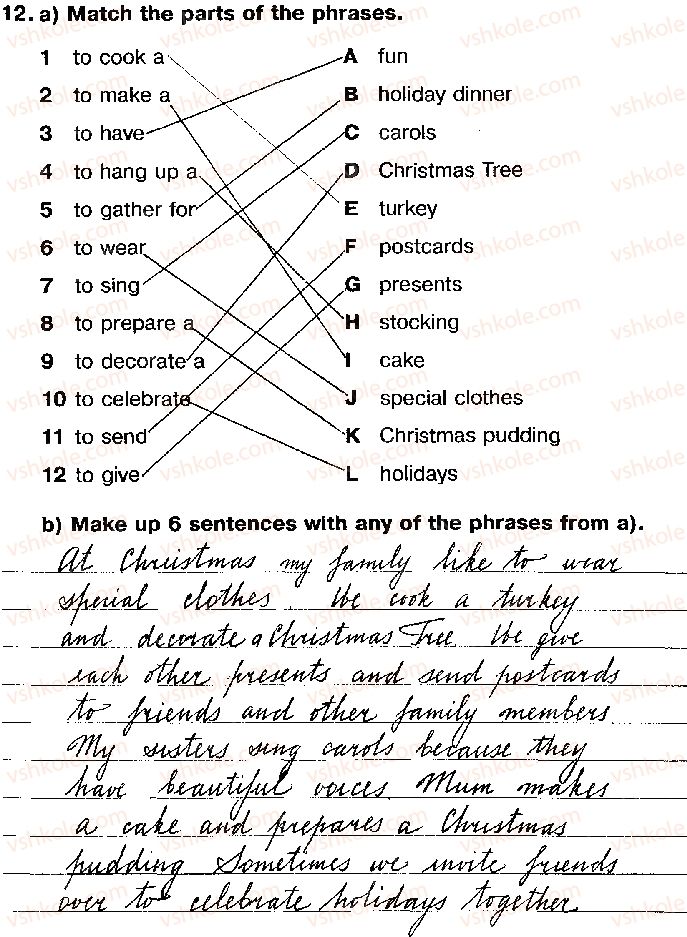 12. a) Match the parts of the phrases.
1 to cook a A fun
2 to make a B holiday dinner
3 to have C carols
4 to hang up a D Christmas Tree
5 to gather for E turkey
6 to wear F postcards
7 to sing G presents
8 to prepare a H stocking
9 to decorate a I cake
10 to celebrate J special clothes
11 to send K Christmas pudding
12 to give L holidays
b) Make up 6 sentences with any of the phrases from a).
At Christmas my family like to wear
special clothes. We cook a turkey
and decorate a Christmas Tree We give
each other presents and send postcards
to friends and other family members
My sisters sing carols because they
have beautiful voices. Mum makes
a cake and prepares a Christmas
pudding Sometimes we invite friends
over to celebrate holidays together
vshkole.com